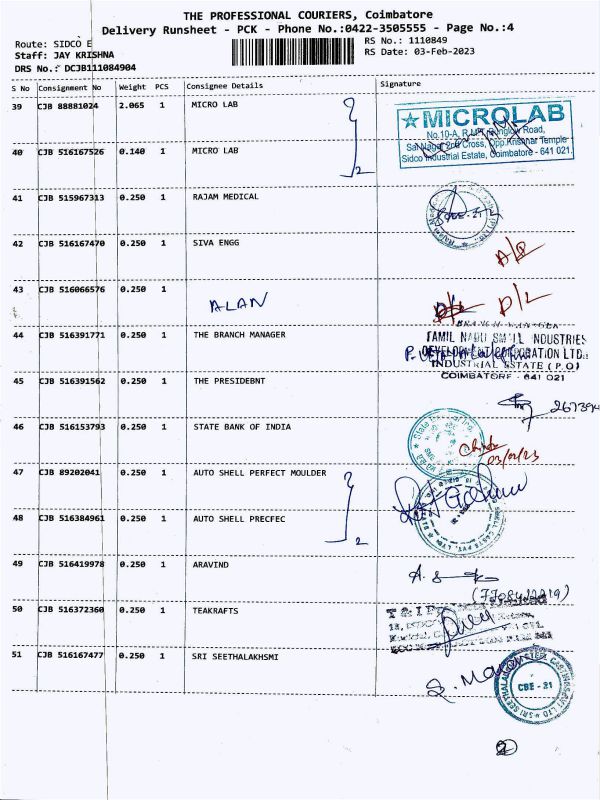 THE PROFESSIONAL COURIERS, Coimbatore
Delivery Runsheet - PCK - Phone No.:0422-3505555 - Page No.:4
Route: SIDCO E
RS No.: 1110849
Staff: JAY KRISHNA
RS Date: 03-Feb-2023
DRS No.: DCJB111084904
S No Consignment No Weight PCS Consignee Details Signature
39 CJB 88881024 2.065 1 MICRO LAB
MICROLAB
Road,
Sai Nagar 2nd Cross, Opp.Krishnar Temple
Sidco Industrial Estate, Coimbatore - 641 021.
40 CJB 516167526 0.140 1 MICRO LAB
2
41 CJB 515967313 0.250 1 RAJAM MEDICAL
42 CJB 516167470 0.250 1 SIVA ENGG
43 CJB 516066576 0.250 1 ALAN
D/L
44 CJB 516391771 0.250 1 THE BRANCH MANAGER
TAMIL NADU SMALL INDUSTRIES
DEVELOPMENT CORPORATION LTD.
INDUSTRIAL ESTATE (P.O)
COIMBATORE - 641 021
45 CJB 516391562 0.250 1 THE PRESIDEBNT
46 CJB 516153793 0.250 1 STATE BANK OF INDIA
03/02/23
47 CJB 89202041 0.250 1 AUTO SHELL PERFECT MOULDER
48 CJB 516384961 0.250 1 AUTO SHELL PRECFEC
2
49 CJB 516419978 0.250 1 ARAVIND
50 CJB 516372360 0.250 1 TEAKRAFTS
51 CJB 516167477 0.250 1 SRI SEETHALAKHSMI
CBE - 21
2